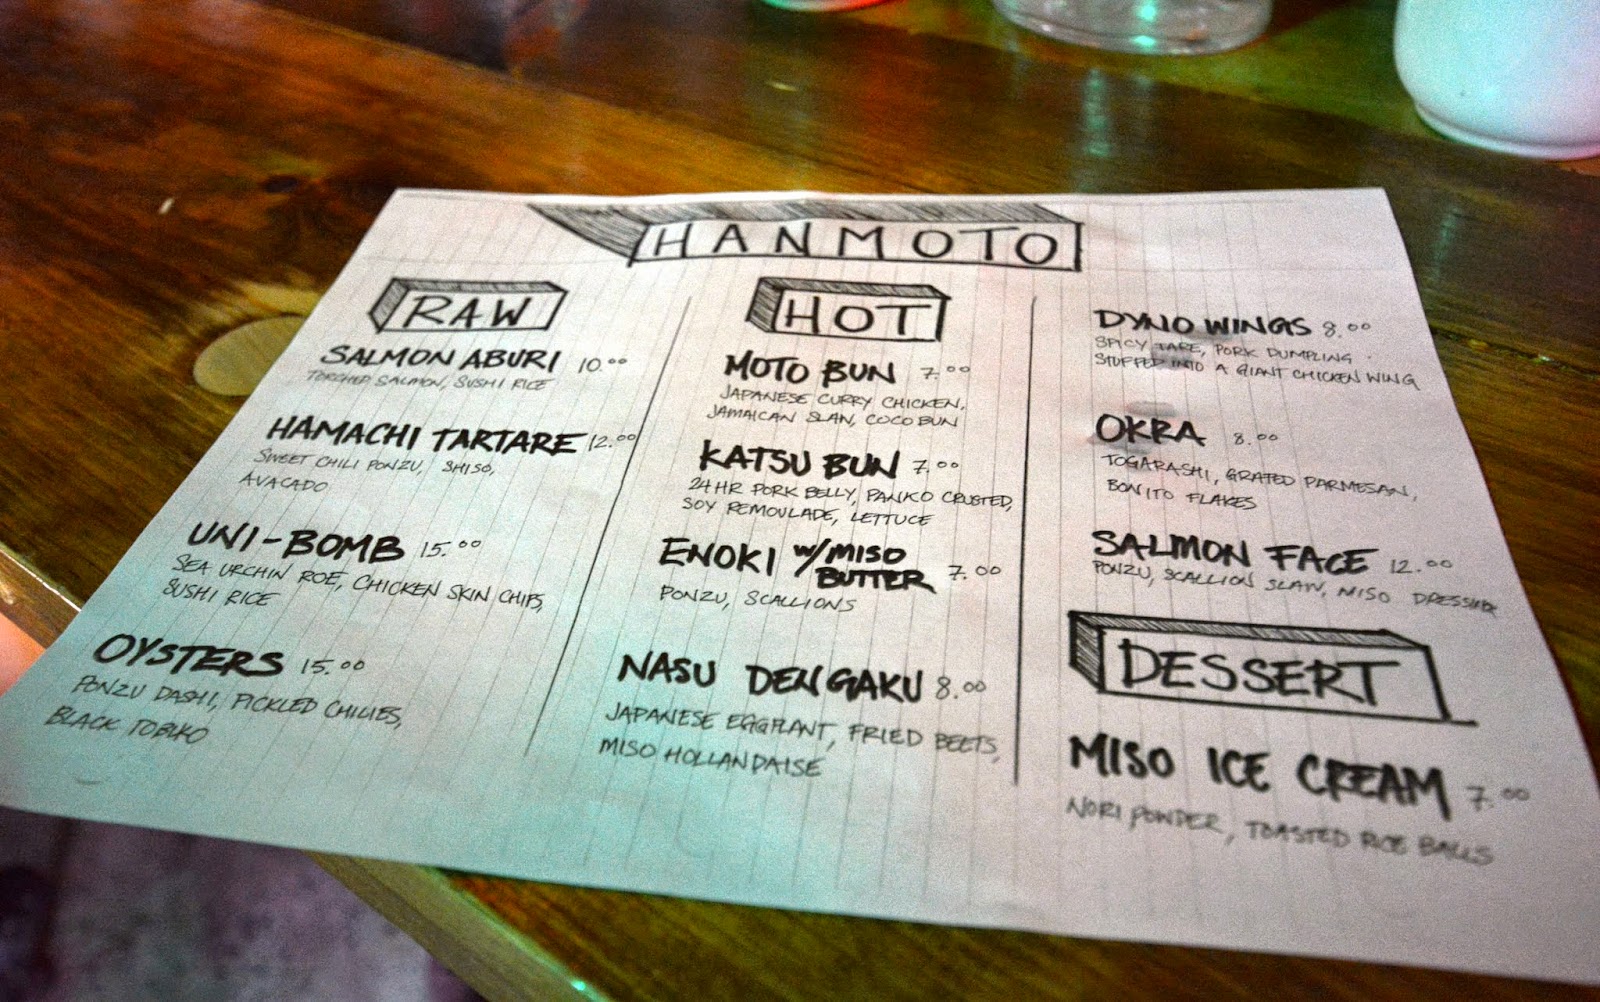 HANMOTO
RAW
SALMON ABURI 10.00
TORCHED SALMON, SUSHI RICE
HAMACHI TARTARE 12.00
SWEET CHILI PONZU, SHISO,
AVACADO
UNI-BOMB 15.00
SEA URCHIN ROE, CHICKEN SKIN CHIPS,
SUSHI RICE
OYSTERS 15.00
PONZU DASHI, PICKLED CHILIES,
BLACK TOBIKO
HOT
MOTO BUN 7.00
JAPANESE CURRY CHICKEN,
JAMAICAN SLAW, COCO BUN
KATSU BUN 7.00
24 HR PORK BELLY, PANKO CRUSTED,
SOY REMOULADE, LETTUCE
ENOKI W/ MISO
BUTTER 7.00
PONZU, SCALLIONS
NASU DENGAKU 8.00
JAPANESE EGGPLANT, FRIED BEETS,
MISO HOLLANDAISE
DYNO WINGS 8.00
SPICY TARE, PORK DUMPLING
STUFFED INTO A GIANT CHICKEN WING
OKRA 8.00
TOGARASHI, GRATED PARMESAN,
BONITO FLAKES
SALMON FACE 12.00
PONZU, SCALLION SLAW, MISO DRESSING
DESSERT
MISO ICE CREAM 7.00
NORI POWDER, TOASTED RICE BALLS